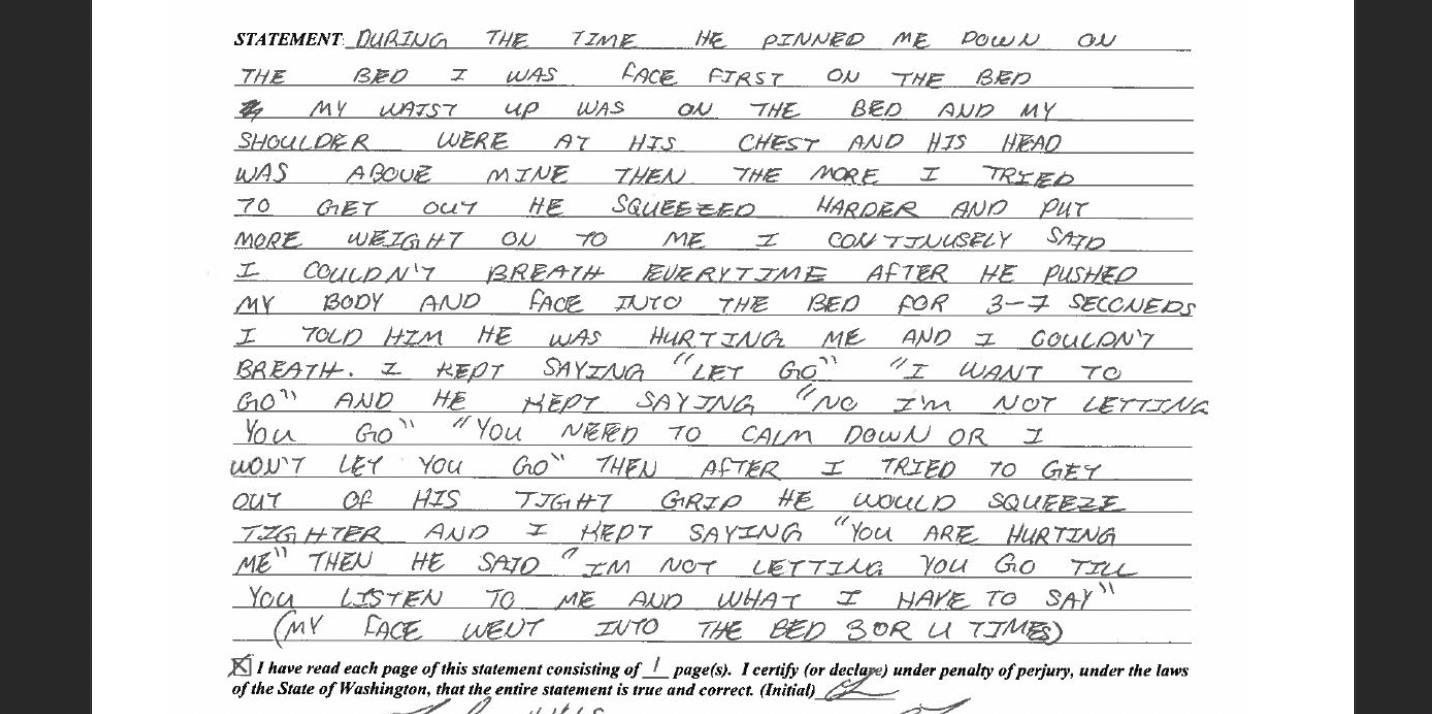 STATEMENT: DURING THE TIME HE PINNED ME DOWN ON
THE BED I WAS FACE FIRST ON THE BED
MY WAIST UP WAS ON THE BED AND MY
SHOULDER WERE AT HIS CHEST AND HIS HEAD
WAS ABOVE MINE THEN THE MORE I TRIED
TO GET OUT HE SQUEEZED HARDER AND PUT
MORE WEIGHT ON TO ME I CONTINUSELY SAID
I COULDN'T BREATH EVERYTIME AFTER HE PUSHED
MY BODY AND FACE INTO THE BED FOR 3-7 SECONEDS
I TOLD HIM HE WAS HURTING ME AND I COULDN'T
BREATH. I KEPT SAYING "LET GO" "I WANT TO
GO" AND HE KEPT SAYING "NO I'M NOT LETTING
YOU GO" "YOU NEED TO CALM DOWN OR I
WON'T LET YOU GO" THEN AFTER I TRIED TO GET
OUT OF HIS TIGHT GRIP HE WOULD SQUEEZE
TIGHTER AND I KEPT SAYING "YOU ARE HURTING
ME" THEN HE SAID "IM NOT LETTING YOU GO TILL
YOU LISTEN TO ME AND WHAT I HAVE TO SAY"
(MY FACE WENT INTO THE BED 3 OR 4 TIMES)
I have read each page of this statement consisting of 1 page(s). I certify (or declare) under penalty of perjury, under the laws
of the State of Washington, that the entire statement is true and correct. (Initial)